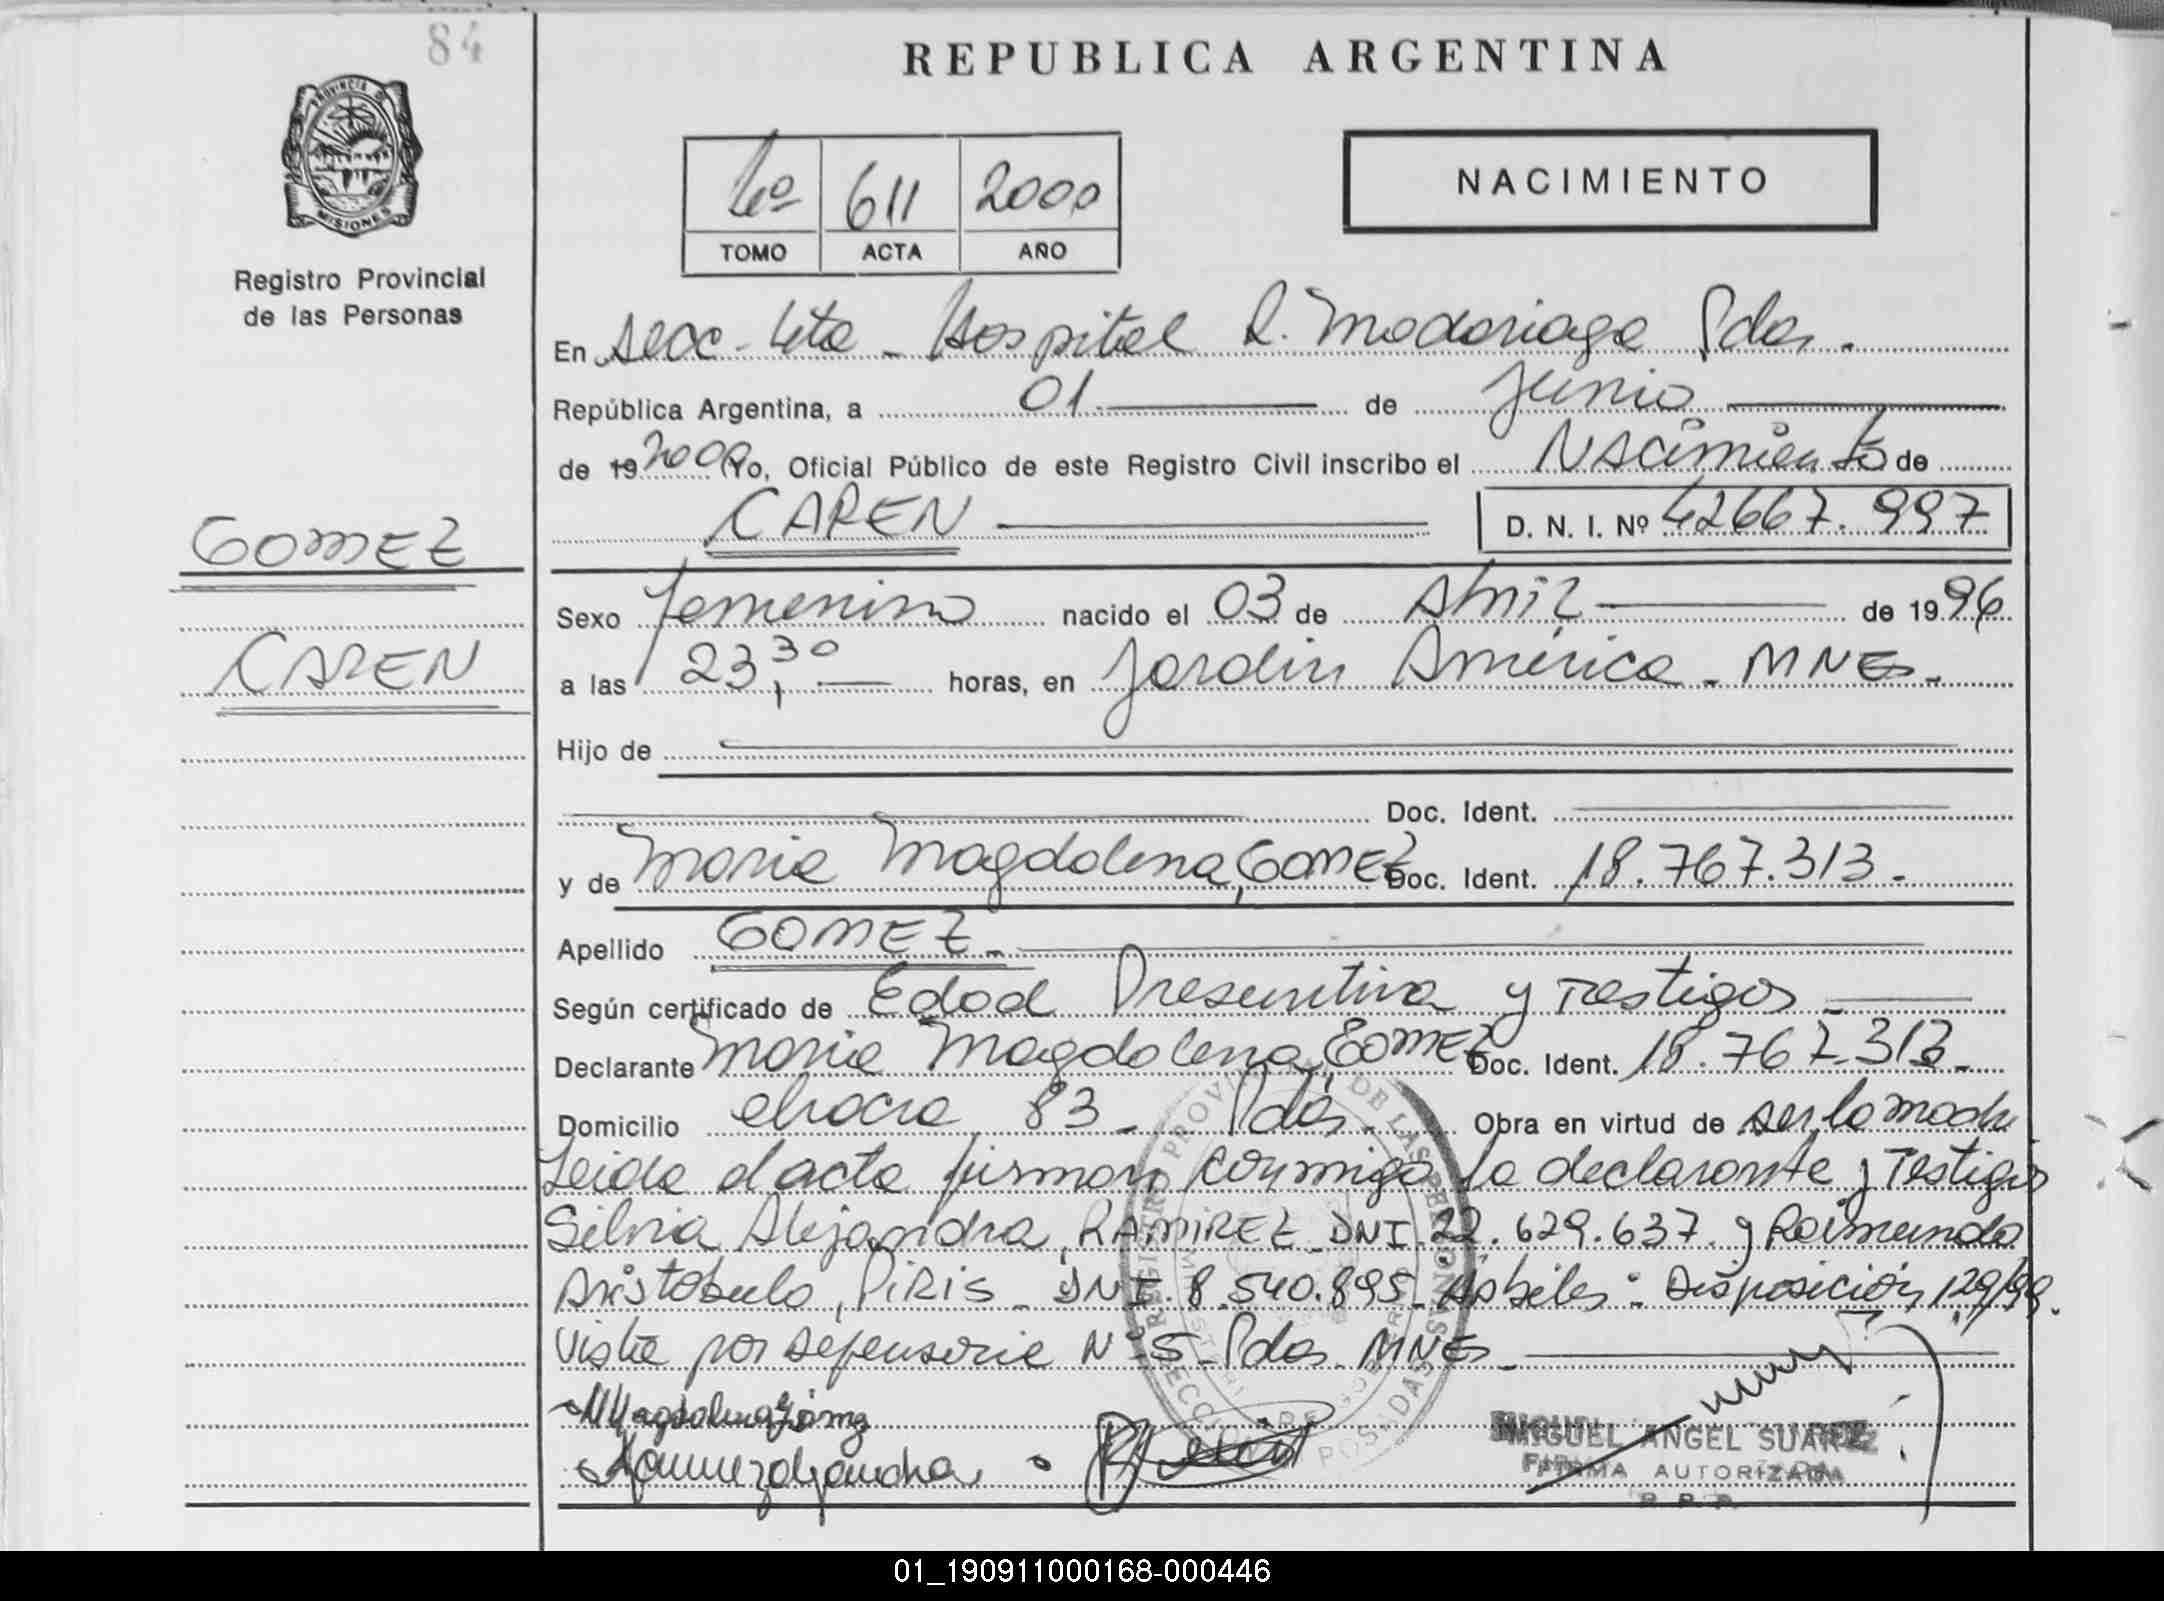 84
REPUBLICA ARGENTINA
PROVINCIA DE
MISIONES
Registro Provincial
de las Personas
4º 611 2000
TOMO ACTA AÑO
NACIMIENTO
En Secc. 4ta - Hospital R. Madariaga Pdas.
República Argentina, a 01 de Junio
de 19 2000 Yo, Oficial Público de este Registro Civil inscribo el Nacimiento de
CAREN D. N. I. Nº 42667.997
GOMEZ
CAREN
Sexo femenino nacido el 03 de Abril de 1996
a las 23,30 horas, en Jardin América - MNES.
Hijo de
Doc. Ident.
y de Maria Magdalena, GOMEZ Doc. Ident. 18.767.313.
Apellido GOMEZ.
Según certificado de Edad Presuntiva y Testigos
Declarante Maria Magdalena, GOMEZ Doc. Ident. 18.767.313.
Domicilio chacra 83 - Pdas. Obra en virtud de ser la madre
Leida el acta firman conmigo la declarante y Testigos
Silvia Alejandra, RAMIREZ DNI 22.629.637 y Raimundo
Aristobulo, PIRIS - DNI 8.540.895 - Habiles: Disposición 129/99.
Vista por Defensoria Nº 5 - Pdas MNES -
REGISTRO PROVINCIAL DE LAS PERSONAS
POSADAS
MIGUEL ANGEL SUAREZ
FIRMA AUTORIZADA
R. P. P.
01_190911000168-000446